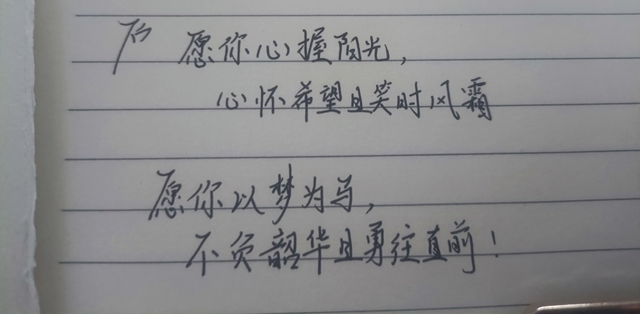 愿你心握阳光,
心怀希望且笑时风霜
愿你以梦为马,
不负韶华且勇往直前!